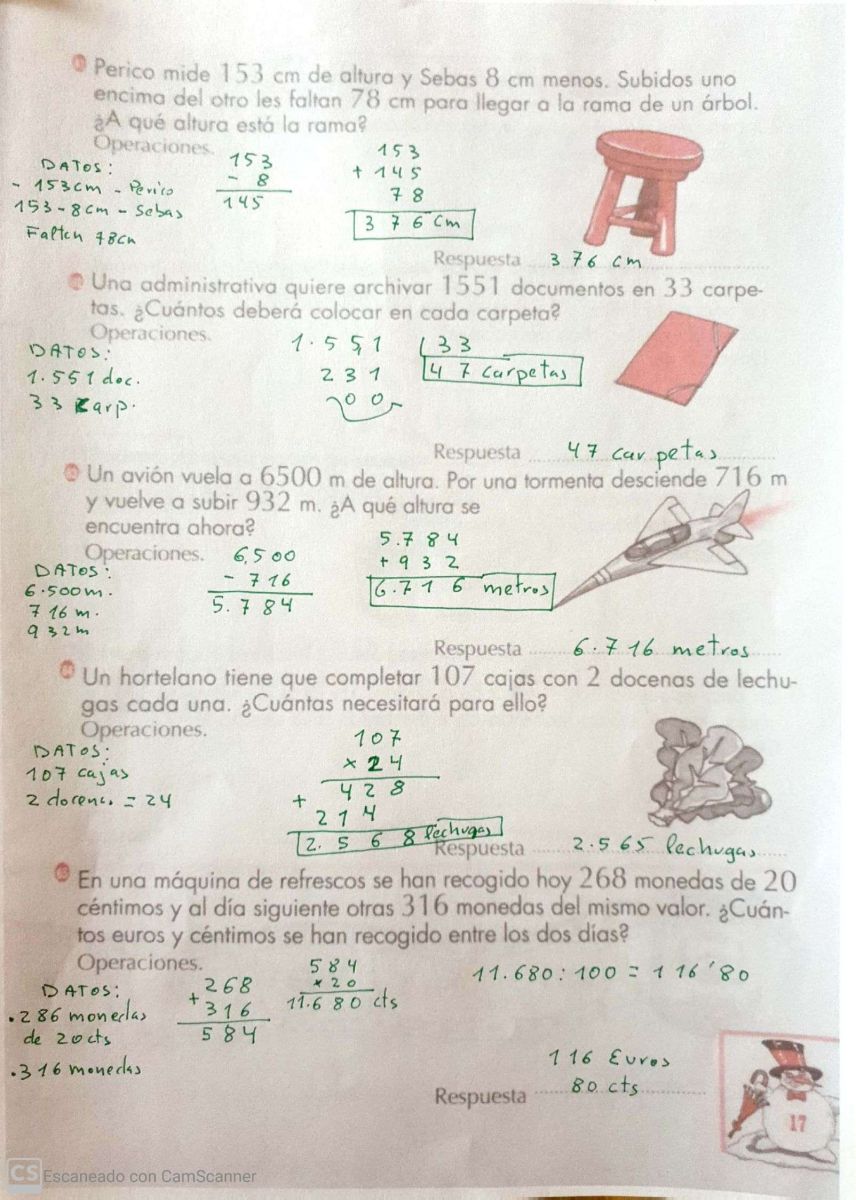 Perico mide 153 cm de altura y Sebas 8 cm menos. Subidos uno
encima del otro les faltan 78 cm para llegar a la rama de un árbol.
¿A qué altura está la rama?
Operaciones.
DATOS:
- 153cm - Perico
153-8cm - Sebas
Falten 78cm
153
- 8
145
153
+ 145
78
376 cm
Respuesta 376 cm
Una administrativa quiere archivar 1551 documentos en 33 carpe-
tas. ¿Cuántos deberá colocar en cada carpeta?
Operaciones.
DATOS:
1.551 doc.
33 carp.
1.551 33
231 47 carpetas
00
Respuesta 47 carpetas
Un avión vuela a 6500 m de altura. Por una tormenta desciende 716 m
y vuelve a subir 932 m. ¿A qué altura se
encuentra ahora?
Operaciones.
DATOS:
6.500m.
716 m.
932m
6,500
- 716
5.784
5.784
+ 932
6.716 metros
Respuesta 6.716 metros
Un hortelano tiene que completar 107 cajas con 2 docenas de lechu-
gas cada una. ¿Cuántas necesitará para ello?
Operaciones.
DATOS:
107 cajas
2 docenc. = 24
107
x 24
428
+ 214
2.568 lechugas
Respuesta 2.565 lechugas
En una máquina de refrescos se han recogido hoy 268 monedas de 20
céntimos y al día siguiente otras 316 monedas del mismo valor. ¿Cuán-
tos euros y céntimos se han recogido entre los dos días?
Operaciones.
DATOS:
.286 monedas
de 20cts
.316 monedas
268
+ 316
584
584
x 20
11.680 cts
11.680 : 100 = 116'80
116 Euros
80 cts
Respuesta
17
CS Escaneado con CamScanner